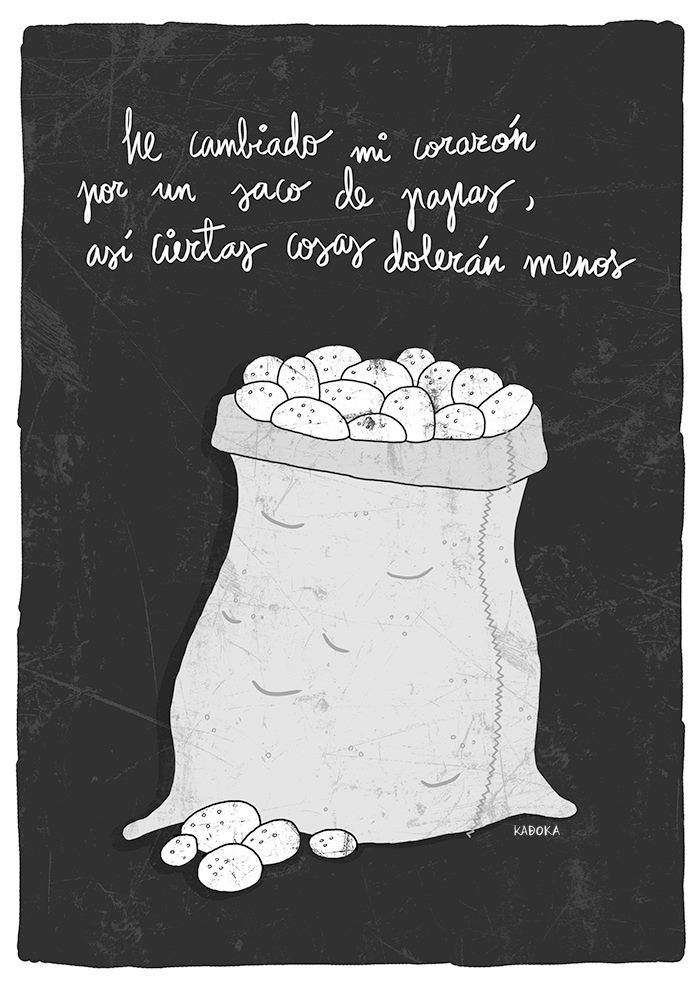 he cambiado mi corazón
por un saco de papas,
así ciertas cosas dolerán menos
KADOKA